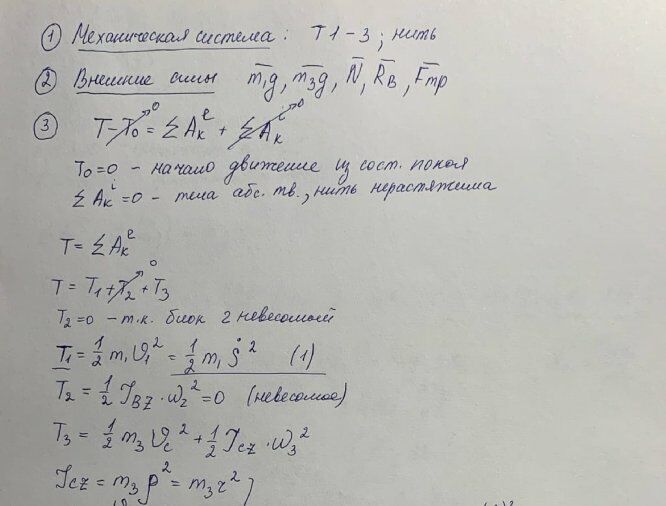 ① Механическая система: Т1-3; нить
② Внешние силы m̅₁g, m̅₃g, N̅, R̅ʙ, F̅тр
③ T - T₀ = ΣAₖᵉ + ΣAₖⁱ
0 0
T₀=0 - начало движение из сост. покоя
ΣAₖⁱ=0 - тела абс. тв., нить нерастяжима
T = ΣAₖᵉ
T = T₁ + T₂ + T₃
0
T₂=0 - т.к. блок 2 невесомый
T₁ = 1/2 m₁ϑ₁² = 1/2 m₁Ṡ² (1)
T₂ = 1/2 J_BZ · ω₂² = 0 (невесомое)
T₃ = 1/2 m₃ϑ_c² + 1/2 J_cz · ω₃²
J_cz = m₃ρ² = m₃r²;